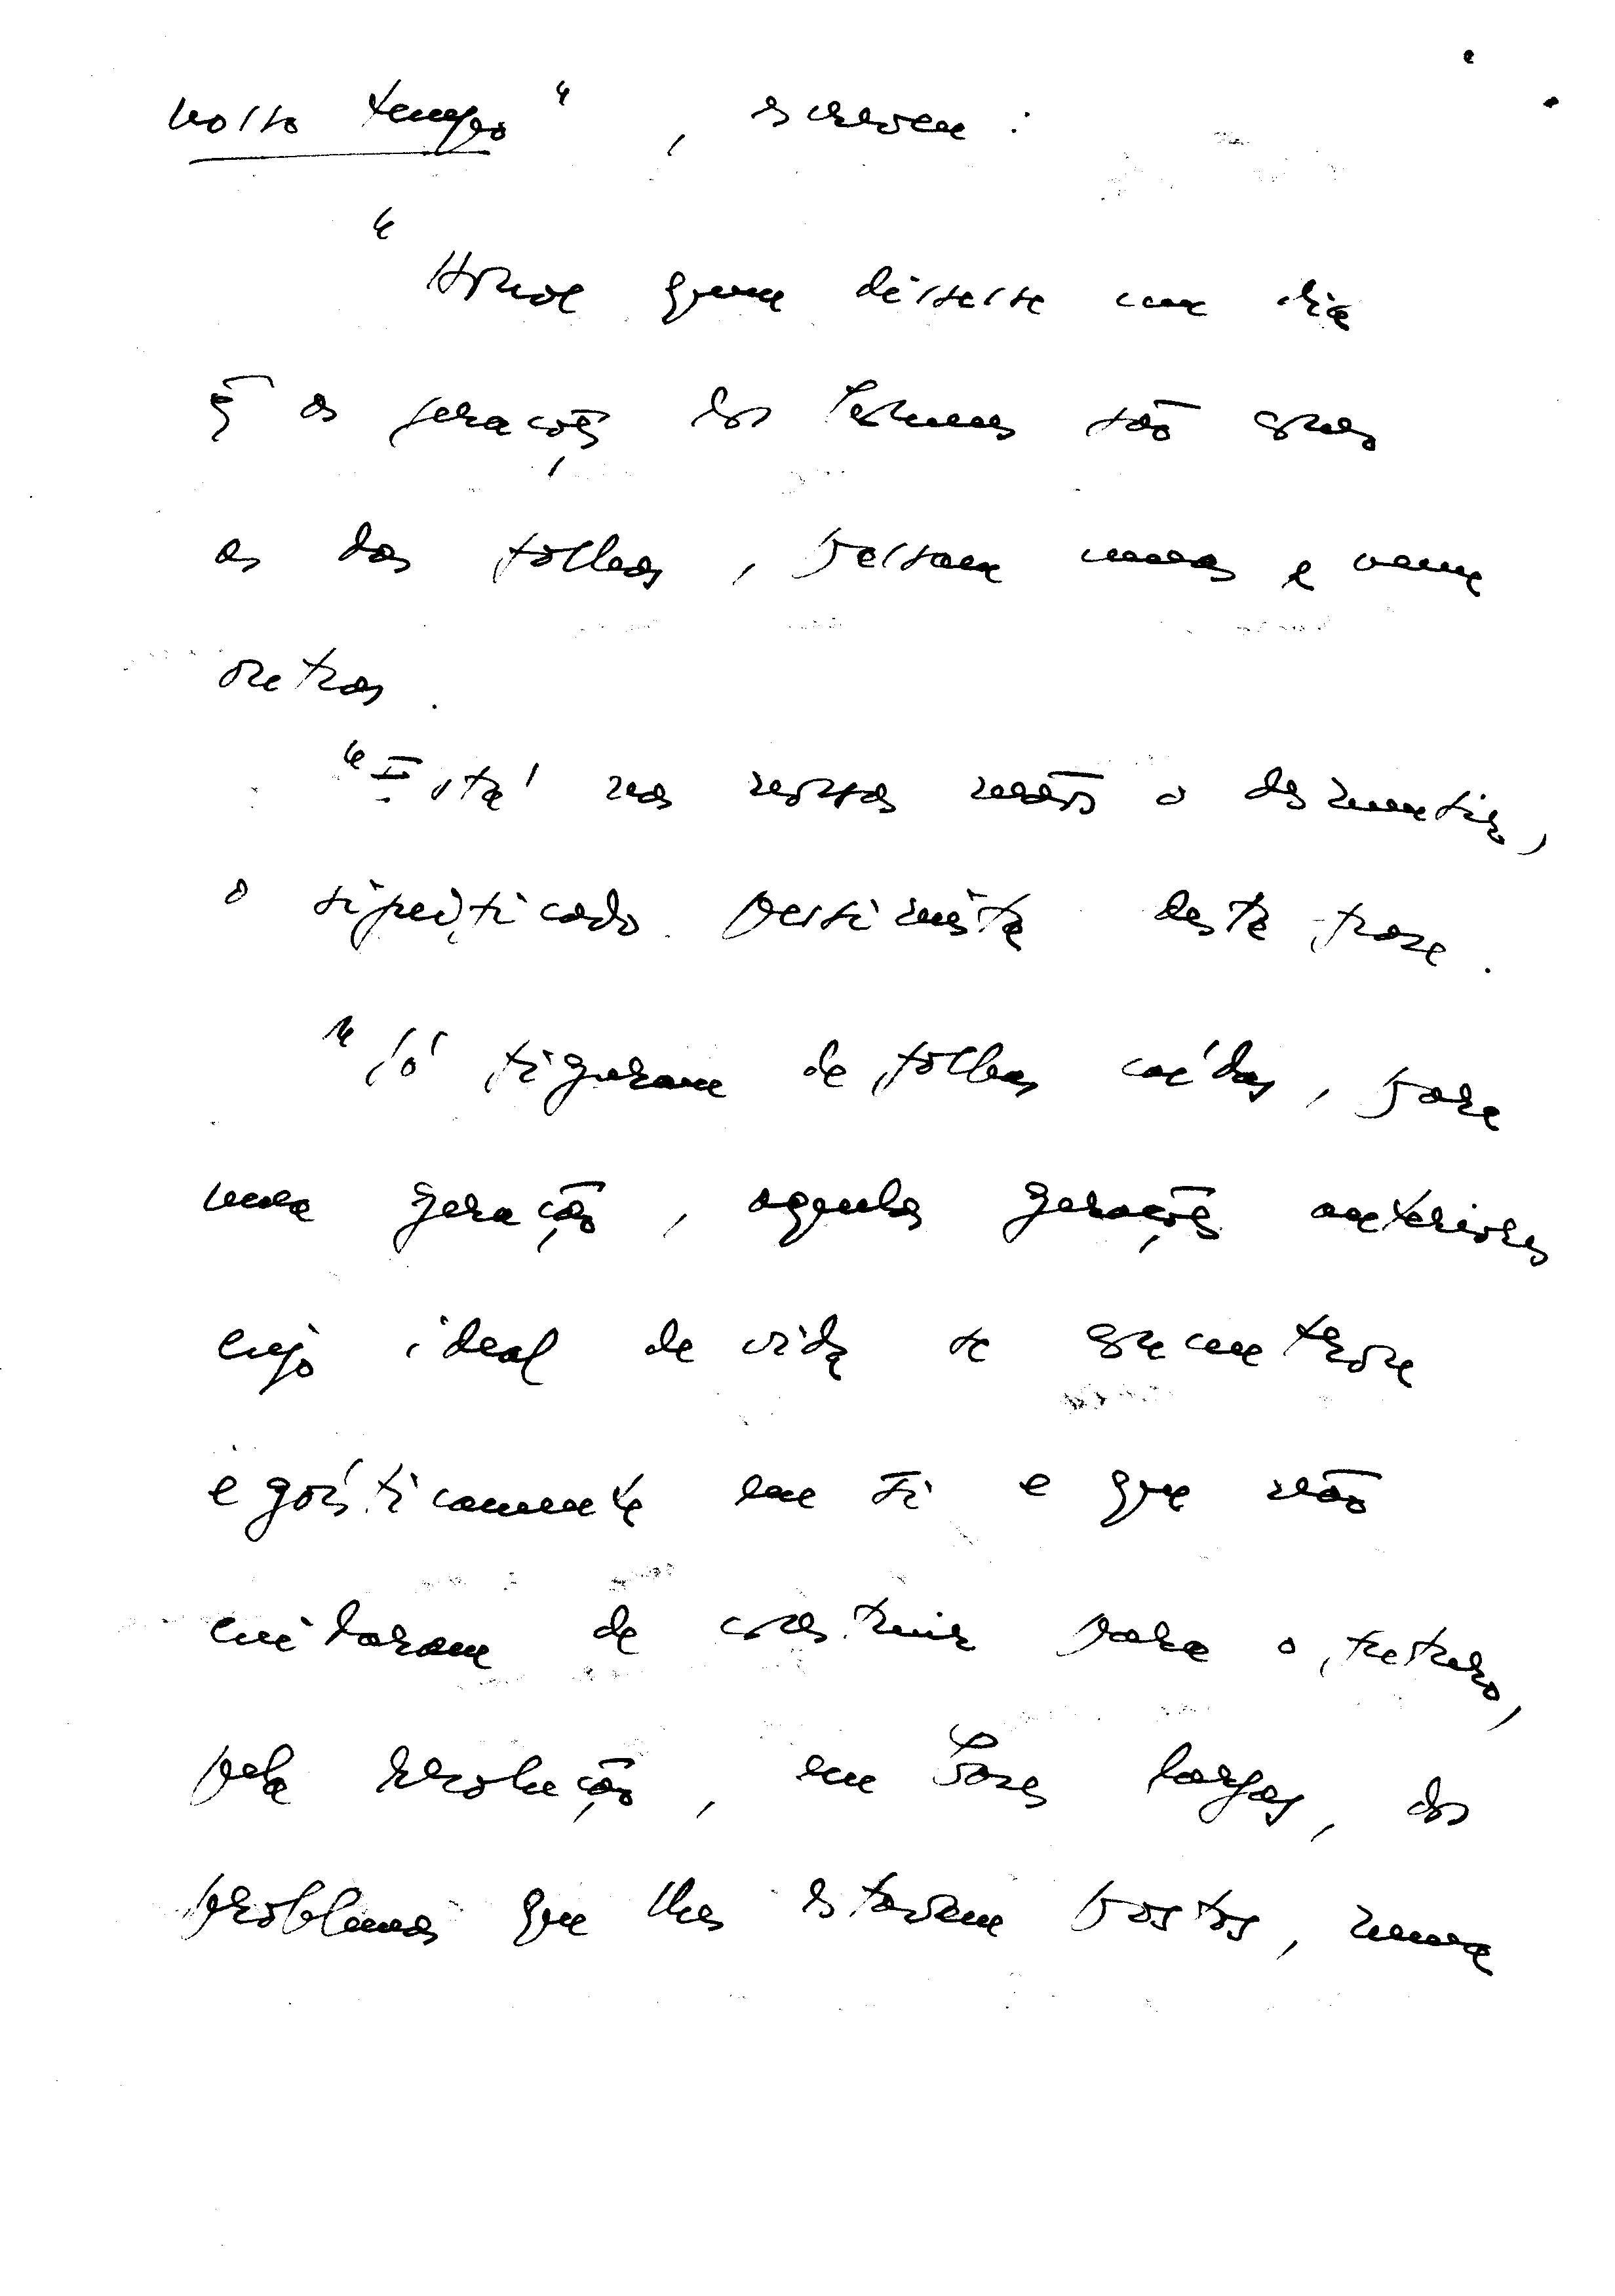 nosso tempo", escreveu:
"Houve quem dissesse um dia
q̄ as gerações dos homens são como
as das folhas, passam umas e vem
outras.
"Está nas nossas mãos o desmentir,
o significado pessimista desta frase.
"Só figuram de folhas caídas, para
uma geração, aquelas gerações anteriores
cujo ideal de vida se concentrou
egoisticamente em si e que não
cuidaram de construir para o futuro,
pela resolução, em bases largas, dos
problemas que lhes estavam postos, numa